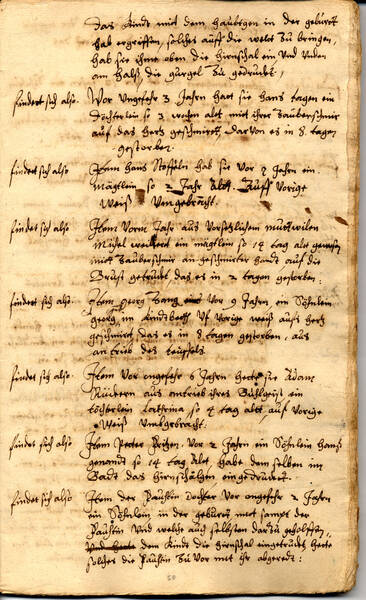 das Kindt mit dem haubtgen in der geburtt
hab ergriffen, solches auff die welt zu bringen,
hab sie ihme oben die hirnschal ein Und Unden
am halß, die gurgel zu gedruckt,
findert sich also. Vor Ungefehr 3 Jahren hatt sie hans
döchterlein so 3 wochen altt mitt ihrer Zauberschmir
auf das hertz geschmiertt, darvon es in 8 tagen
gestorben.
findet sich also Item hans hab sie vor 2 Jahrn ein
mägtlein so 2 Jahr altt Auff vorige
Weiß Umgebracht.
findet sich also Item Vorm Jahr aus Vorsetzlichem muttwilen
Michel ein mägtlein so 14 tag altt gewesen
mitt Zauberschmir an geschmirter handt auf die
Brust getruckt, das es in 2 tagen gestorben:
findet sich also. Item Georg vor 9 Jahren ein Söhnlein
georg, im Kindtbeth, Uf Vorige weiß aufs hertz
geschmirtt, das es in 8 tagen gestorben, aus
antrieb des teuffels.
findet sich also Item Vor ongefehr 6 Jahren hette sie Adam
aus antrieb ihres Buhlgeist ein
töchterlein so 4 tag altt, auf vorige
Weiß Umbgebracht.
findet sich also Item Petter vor 2 Jahren ein Söhnlein hanß
genandt so 14 tag altt, habe dem selben im
Badt das hirnschälgen eingedruckt.
findet sich also Item der dochter Vor ongefehr 2 Jahrn
ein Söhnlein in der geburtt mitt sampt der
Und welche auch selbsten darzu geholffen,
dem Kindt die hirnschal eingetruckt, hette
solches die Zu Vor mit ihr abgeredt:
50